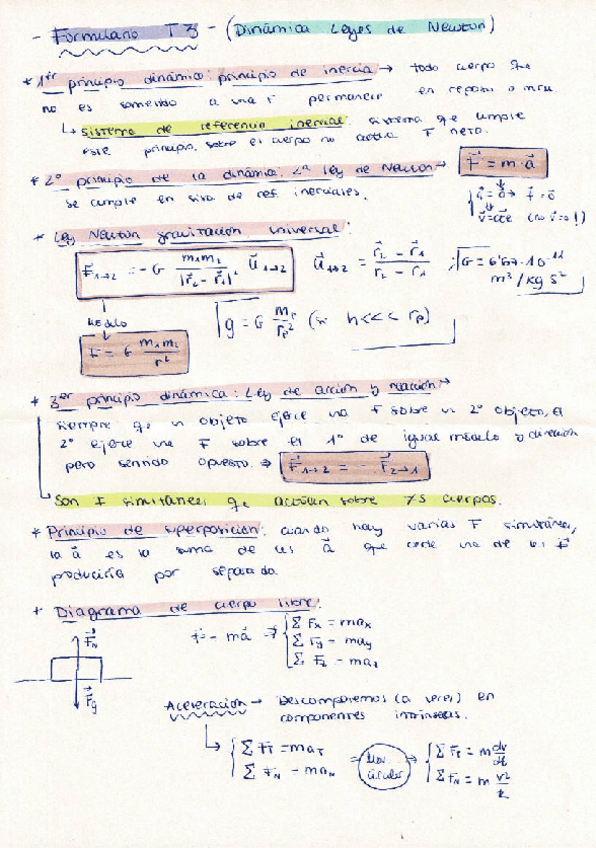 - Formulario T3 - (Dinámica Leyes de Newton)
* 1er principio dinámica: principio de inercia → todo cuerpo que
no es sometido a una F permanece en reposo o mru.
↳ Sistema de referencia inercial: sistema qe cumple
este principio. sobre el cuerpo no actúa F neta.
* 2º principio de la dinámica: 2ª ley de Newton → F⃗ = m·a⃗
se cumple en sist de ref. inerciales.
v⃗=cte (no v=0!)
* Ley Newton gravitación universal:
F⃗1→2 = -G m1m2/|r⃗2 - r⃗1|² u⃗1→2 u⃗1→2 = r⃗2 - r⃗1/r2 - r1 ; G = 6'67·10⁻¹¹
m³/kg s²
MÓDULO g = G mp/rp² (si h<<< rp)
F = G m1m2/r²
* 3er principio dinámica: Ley de acción y reacción →
siempre qe un objeto ejerce una F sobre un 2º objeto, el
2º ejerce una F sobre el 1º de igual módulo y dirección
pero sentido opuesto ⇒ F⃗1→2 = - F⃗2→1
Son F simultáneas qe actúan sobre ≠s cuerpos.
* Principio de superposición: cuando hay varias F simultáneas,
la a⃗ es la suma de las a⃗ que cada una de las F⃗
produciría por separado.
* Diagrama de cuerpo libre:
F⃗N F⃗ = ma⃗ ⇒ Σ Fx = max
Σ Fy = may
Σ Fz = maz
F⃗g
Aceleración → Descomponemos (a veces) en
componentes intrínsecas.
↳ Σ FT = maT ⇒ Mov. circular ⇒ Σ FT = m dv/dt
Σ FN = maN Σ FN = m v²/R